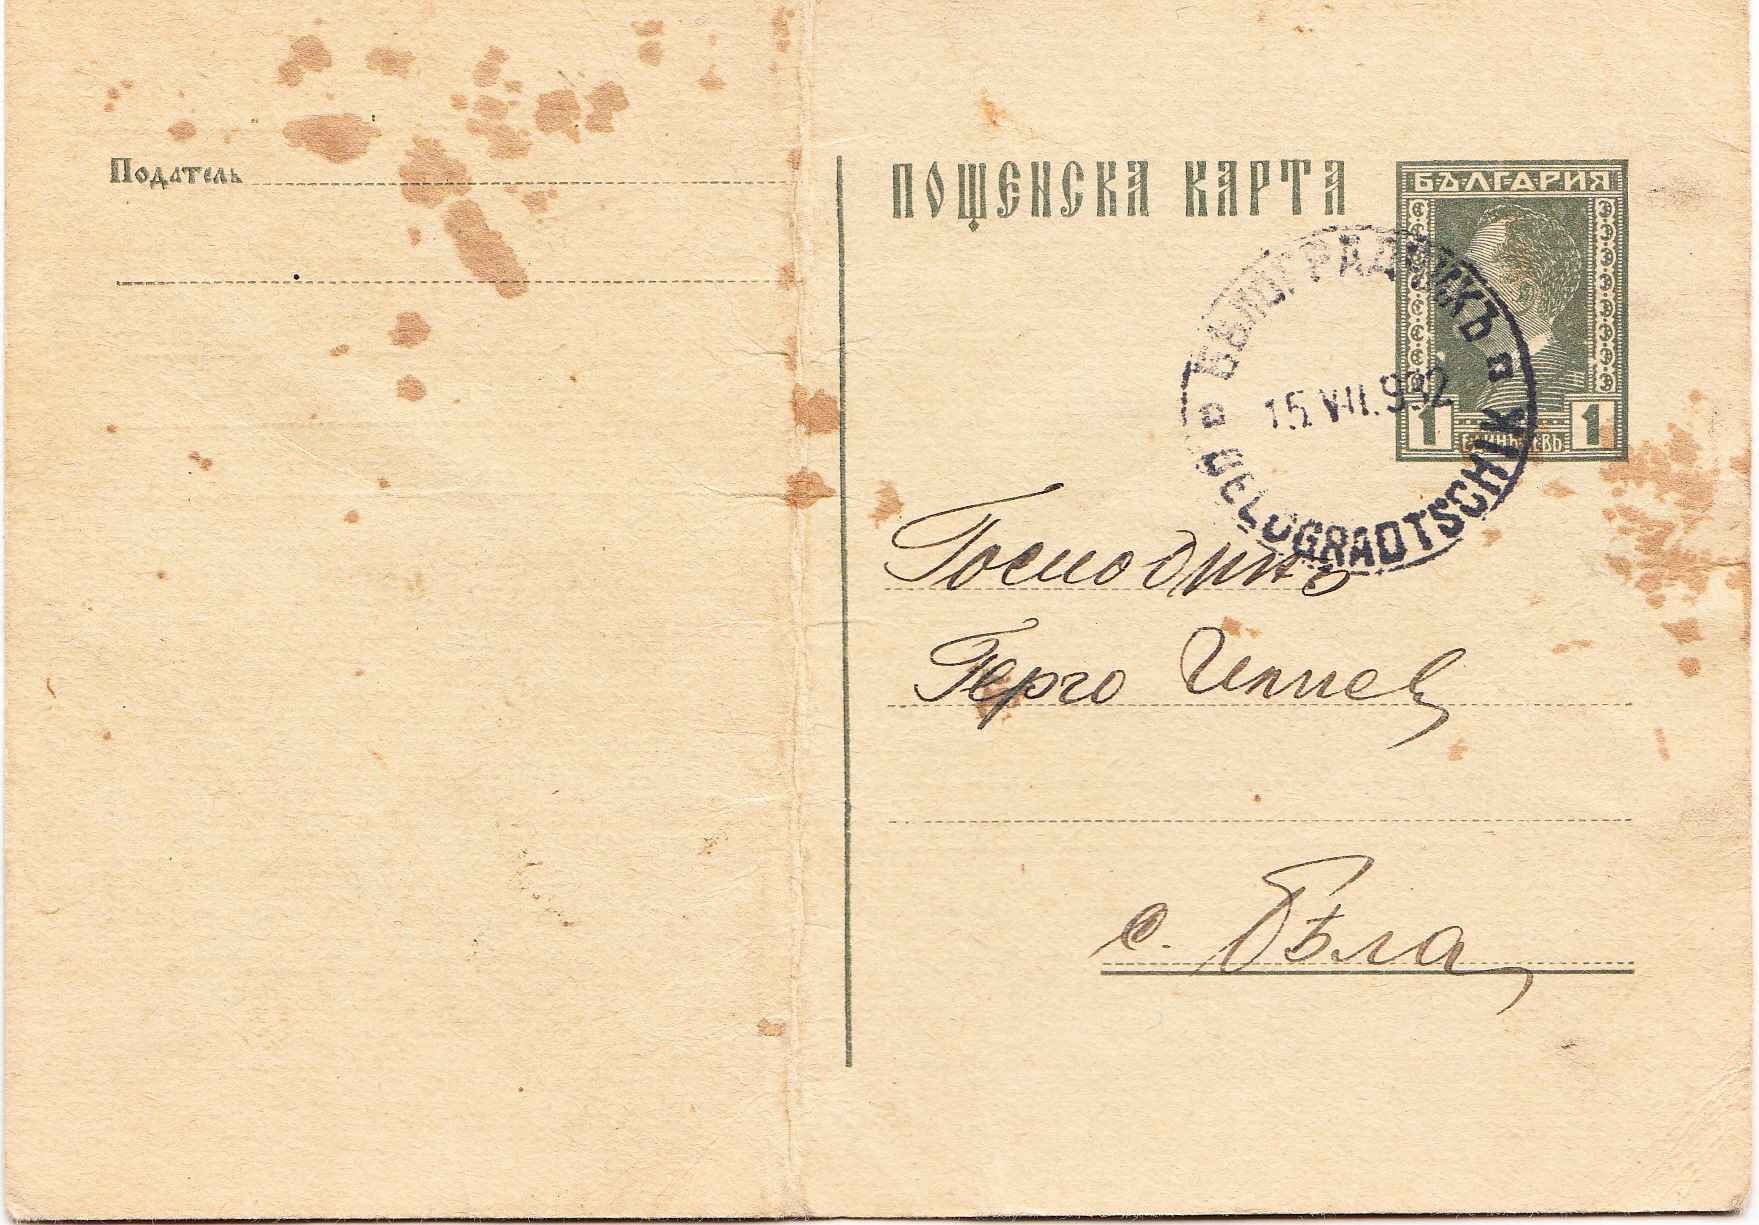 Податель
ПОЩЕНСКА КАРТА
БЪЛГАРИЯ
1 ЕДИНЪ ЛЕВЪ 1
БѢЛОГРАДЧИКЪ
15.VII.932
BELOGRADTSCHIK
Господинъ
Герго
с. Бѣла